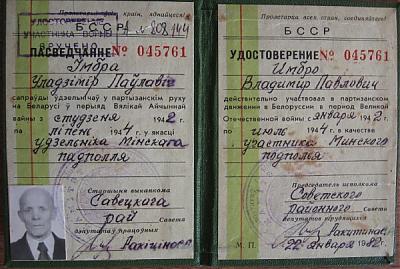 Пролетарыі ўсіх краін, яднайцеся!
УДОСТОВЕРЕНИЕ
УЧАСТНИКА ВОЙНЫ
ВРУЧЕНО
БССР
№ 808144
ПАСВЕДЧАННЕ № 045761
Имбра
Уладзімір Паўлавіч
сапраўды ўдзельнічаў у партызанскім руху
на Беларусі ў перыяд Вялікай Айчыннай
вайны з студзеня 1942 г. па
ліпень 1944 г. у якасці
удзельніка Мінскага
падполля
Старшыня выканкома
Савецкага
рай Савета
дэпутатаў працоўных
Ракітинова
Пролетарии всех стран, соединяйтесь!
БССР
УДОСТОВЕРЕНИЕ № 045761
Имбро
Владимир Павлович
действительно участвовал в партизанском
движении в Белоруссии в период Великой
Отечественной войны с января 1942 г.
по июль 1944 г. в качестве
участника Минского
подполья
Председатель исполкома
Советского
районного Совета
депутатов трудящихся
М. П. 22 января 1982 г.